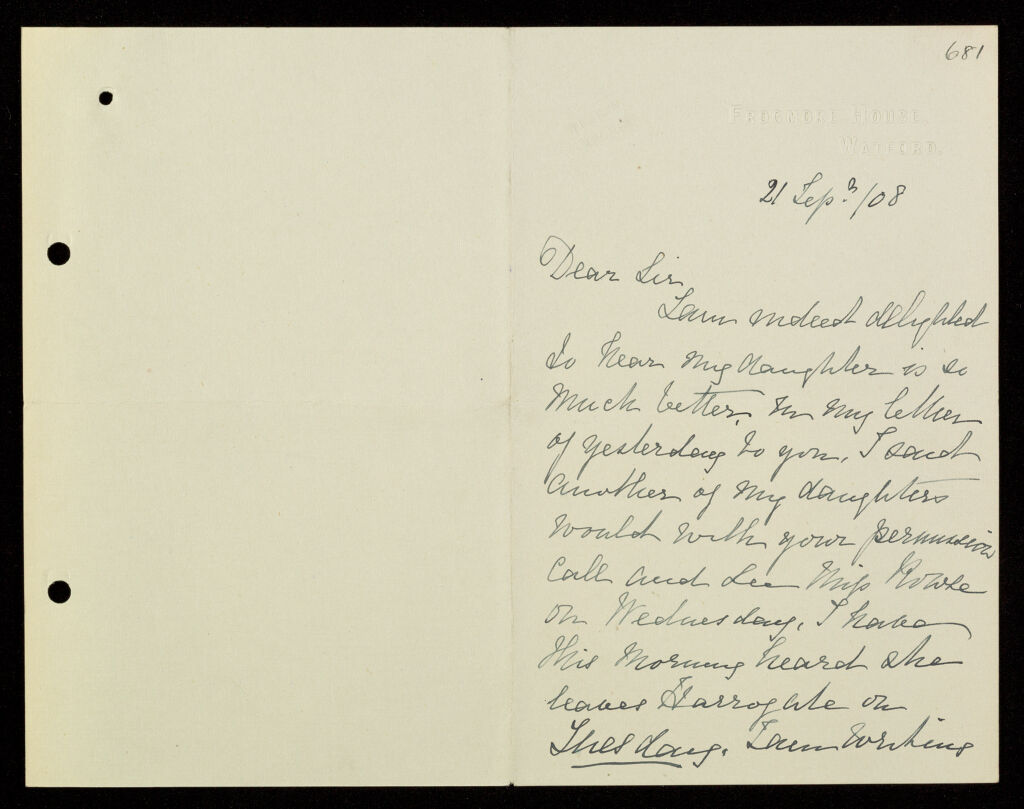 681
FROGMORE HOUSE,
WATFORD.
21 Sep. /08
Dear Sir
I am indeed delighted
to hear my daughter is so
much better, in my letter
of yesterday to you, I said
another of my daughters
would with your permission
call and see Miss Rowse
on Wednesday, I have
this morning heard she
leaves Harrogate on
Thesday. I am writing